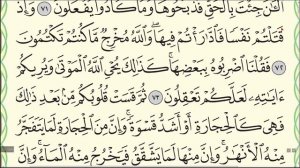 الْـَٰٔنَ جِئْتَ بِالْحَقِّ فَذَبَحُوهَا وَمَا كَادُوا۟ يَفْعَلُونَ ٧١ وَإِذْ
قَتَلْتُمْ نَفْسًا فَٱدَّٰرَْٰٔتُمْ فِيهَا وَٱللَّهُ مُخْرِجٌ مَّا كُنتُمْ تَكْتُمُونَ
٧٢ فَقُلْنَا ٱضْرِبُوهُ بِبَعْضِهَا كَذَٰلِكَ يُحْىِ ٱللَّهُ ٱلْمَوْتَىٰ وَيُرِيكُمْ
ءَايَٰتِهِۦ لَعَلَّكُمْ تَعْقِلُونَ ٧٣ ثُمَّ قَسَتْ قُلُوبُكُم مِّنۢ بَعْدِ ذَٰلِكَ
فَهِىَ كَٱلْحِجَارَةِ أَوْ أَشَدُّ قَسْوَةً وَإِنَّ مِنَ ٱلْحِجَارَةِ لَمَا يَتَفَجَّرُ
مِنْهُ ٱلْأَنْهَٰرُ وَإِنَّ مِنْهَا لَمَا يَشَّقَّقُ فَيَخْرُجُ مِنْهُ ٱلْمَآءُ وَإِنَّ